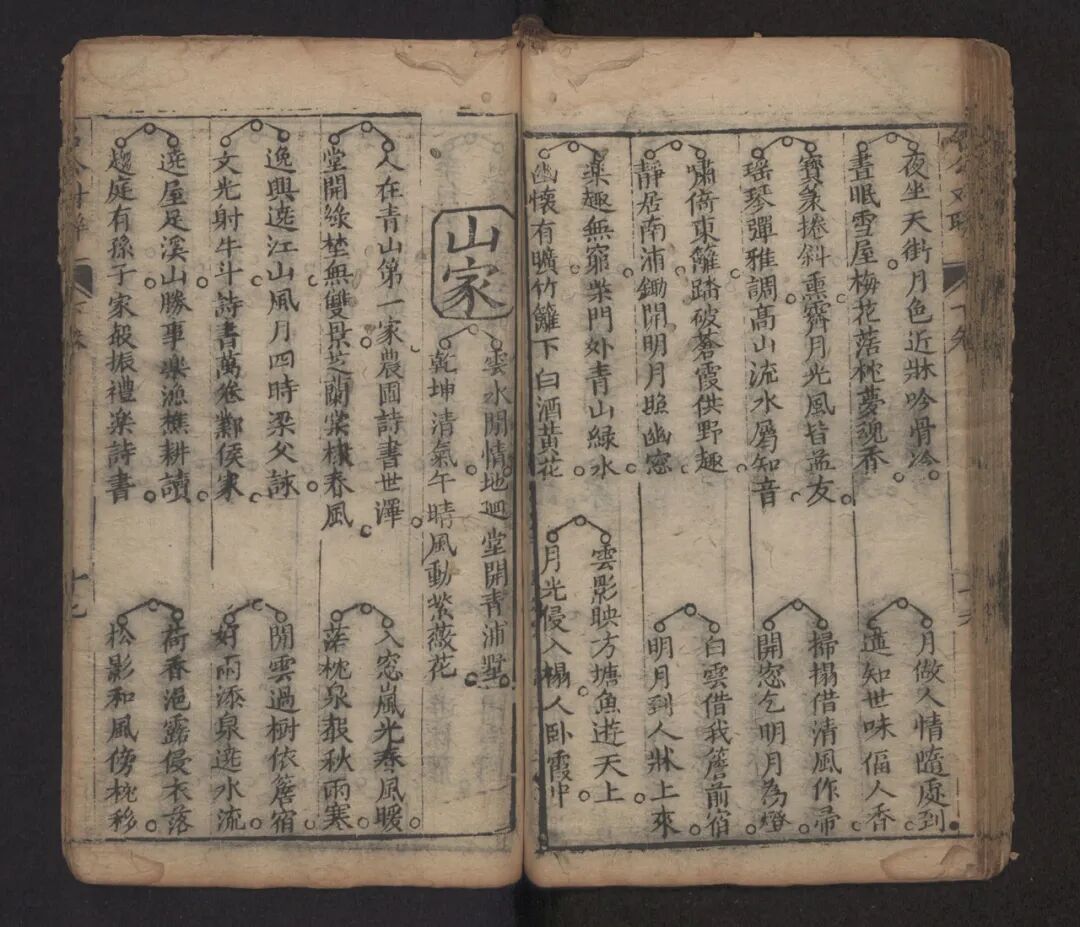 夜坐天街月色近牀吟骨冷
晝眠雪屋梅花落枕夢魂香
月倣人情隨處到
進知世味偪人香
寶篆捲斜熏霽月光風皆益友
瑶琴彈雅調高山流水屬知音
掃榻借清風作帚
開窓乞明月為燈
嘯倚東籬踏破蒼霞供野趣
靜居南浦鋤開明月照幽窓
白雲借我簷前宿
明月到人牀上來
藥趣無窮柴門外青山綠水
幽懷有曠竹籬下白酒黃花
雲影映方塘魚遊天上
月光侵入榻人卧霞中
山家
雲水閒情地迥堂開青浦墅
乾坤清氣午晴風動紫薇花
人在青山第一家農圃詩書世澤
堂開綠埜無雙景芝蘭棠棣春風
入窓嵐光春風暖
落枕泉聲秋雨寒
逸興遶江山風月四時梁父詠
文光射牛斗詩書萬卷鄴侯家
閒雲過樹依簷宿
好雨添泉遶水流
遶屋足溪山勝事樂漁樵耕讀
趨庭有孫子家聲振禮樂詩書
荷香浥露侵衣落
松影和風傍枕移